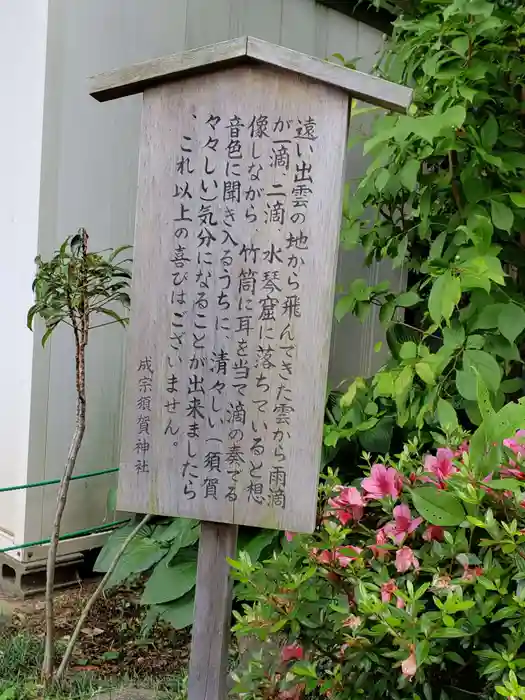 遠い出雲の地から飛んできた雲から雨滴
が一滴、二滴、水琴窟に落ちていると想
像しながら、竹筒に耳を当て滴の奏でる
音色に聞き入るうちに、清々しい（須賀
々々しい）気分になることが出来ましたら
、これ以上の喜びはございません。
成宗須賀神社